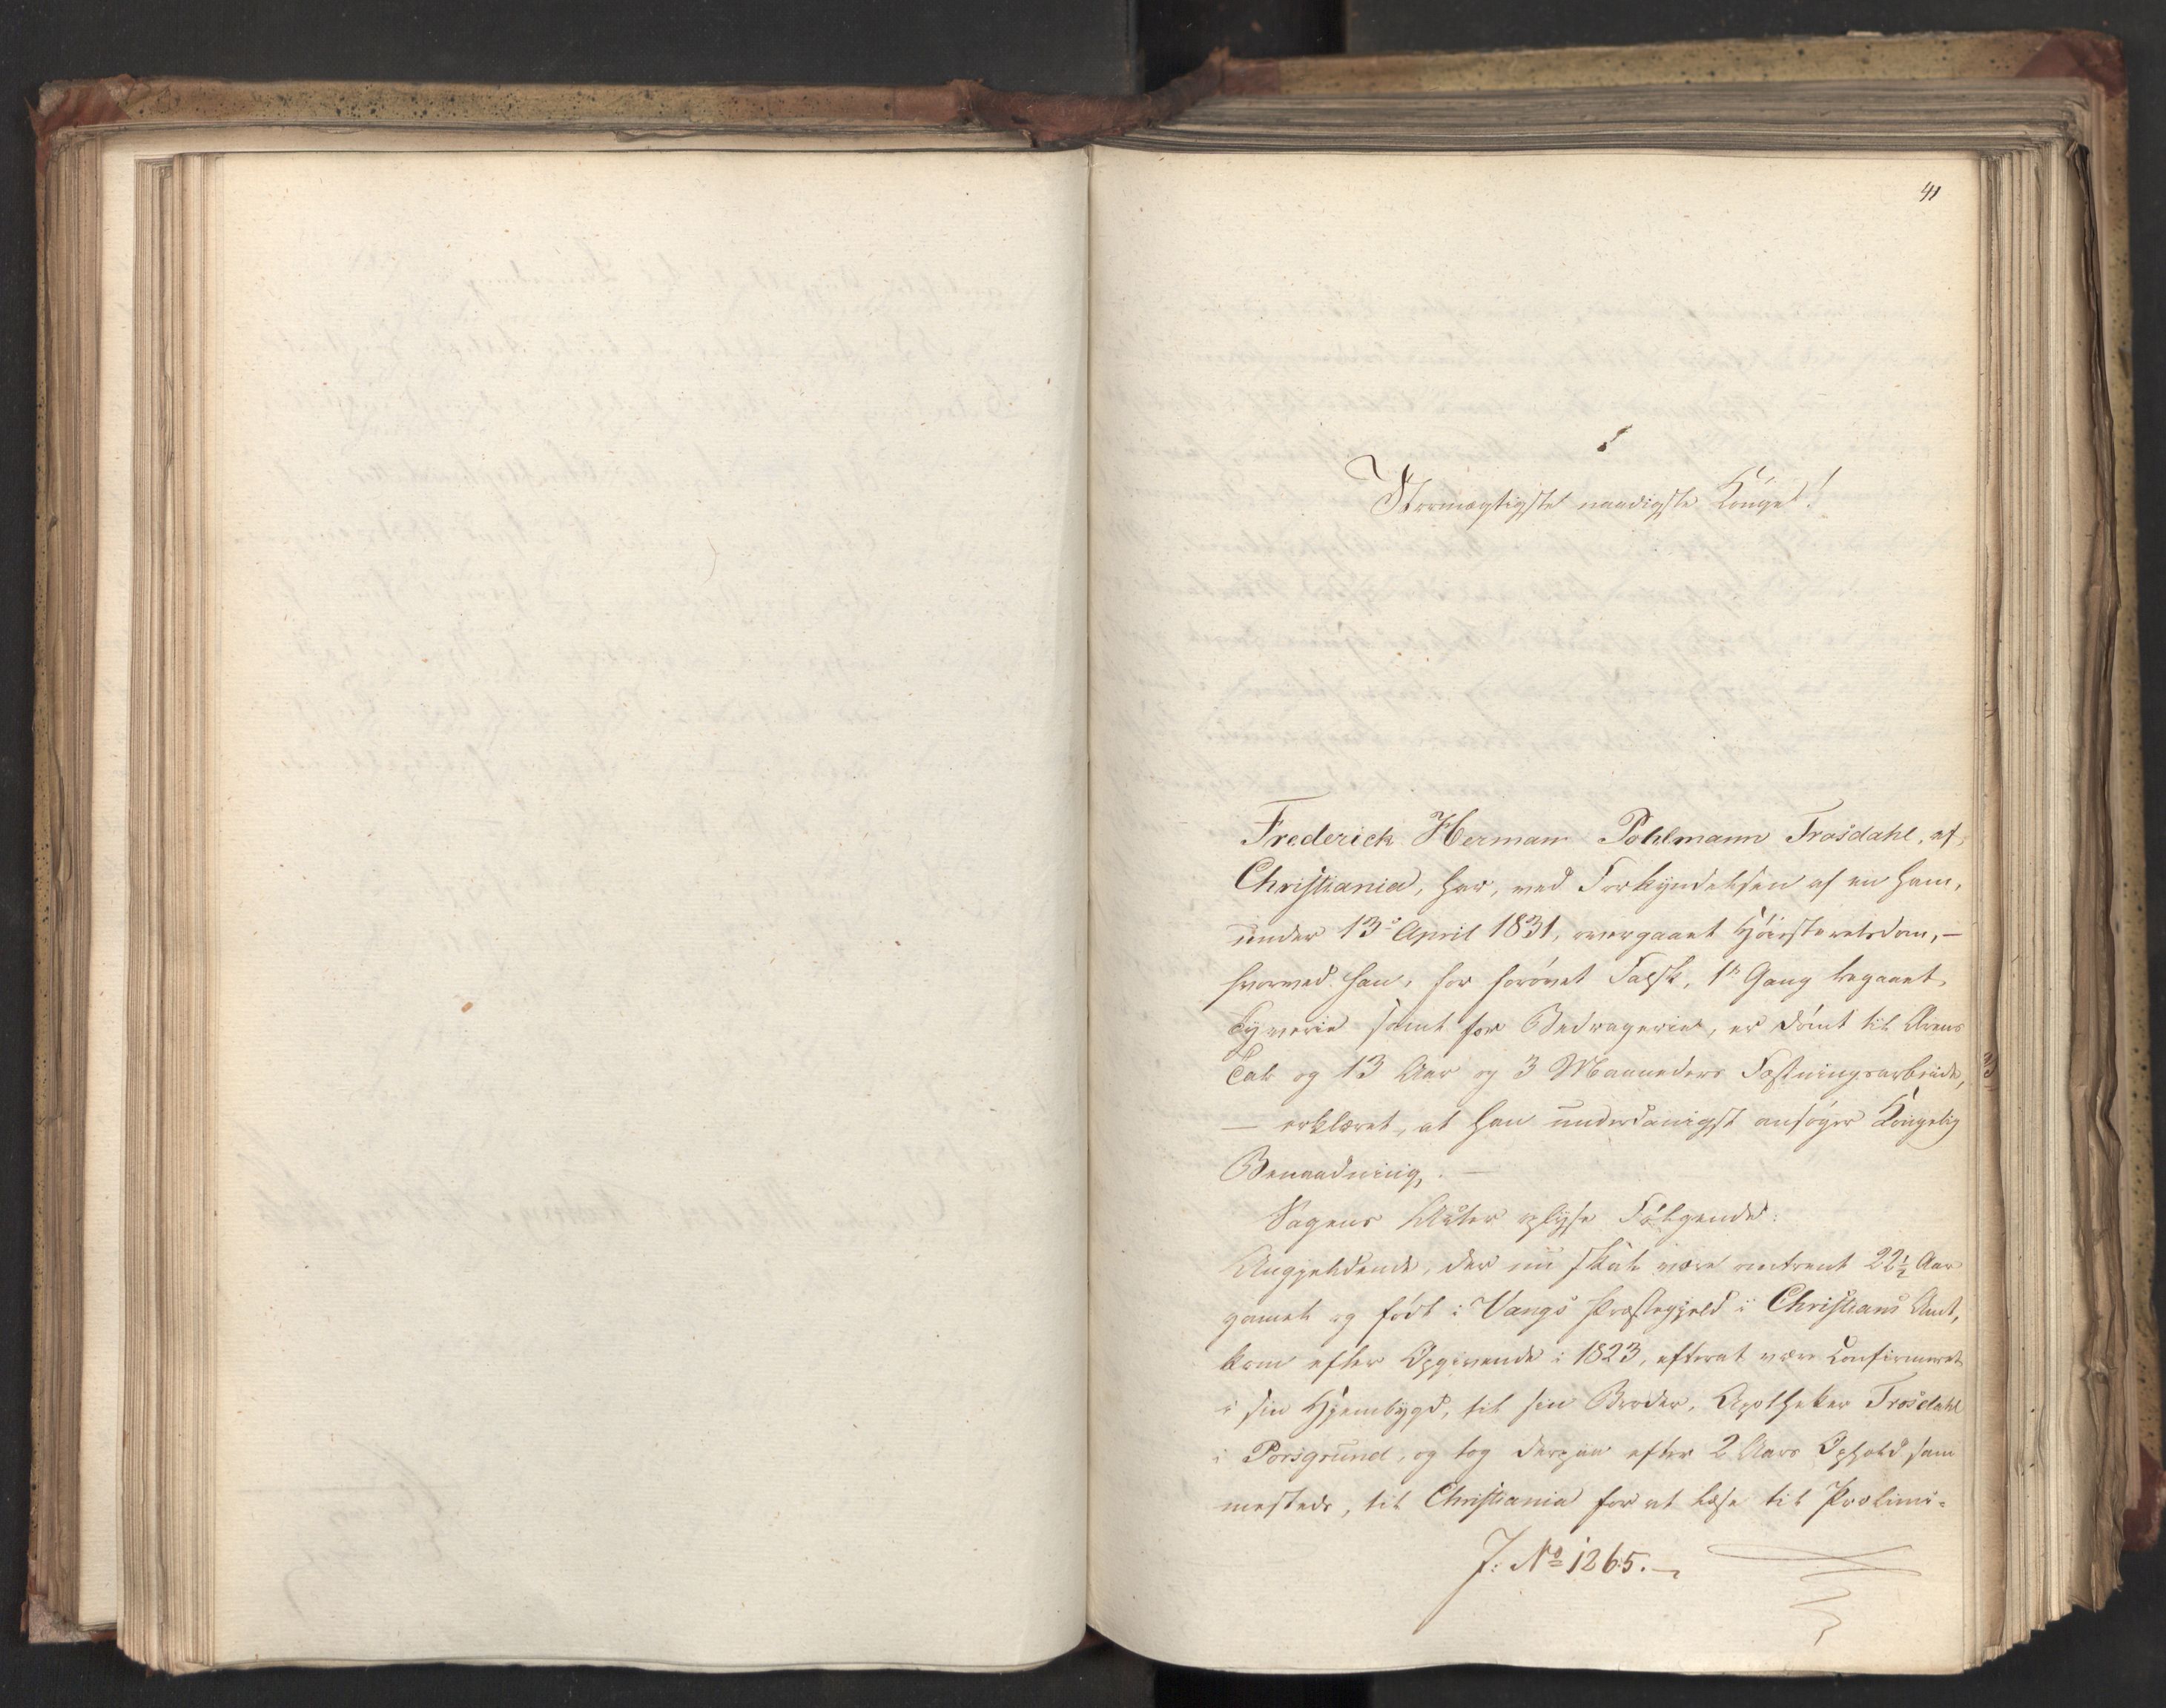 41
Stormægtigste naadigste Konge!
Frederick Herman Pohlmann Trosdahl, af
Christiania, har, ved Forkyndelsen af en ham,
under 13de April 1831, overgaaet Høiesteretsdom, –
hvorved han, for forøvet Falsk, 1ste Gang begaaet
Tyverie samt for Bedragerier, er dømt til Ærens
Tab og 13 Aar og 3 Maaneders Fæstningsarbeide,
– erklæret, at han underdanigst ansøger Kongelig
Benaadning. –
Sagens Akter oplyse Følgende:
Angjeldende, der nu skal være omtrent 22½ Aar
gammel og født i Vangs Præstegjeld i Christians Amt,
kom efter Opgivende i 1823, efterat være Confirmeret
i sin Hjembygd, til sin Broder, Apotheker Trosdahl
i Porsgrund, og tog derpaa efter 2 Aars Ophold sam
mesteds, til Christiania for at læse til Prælimi-
J: No 1265. –